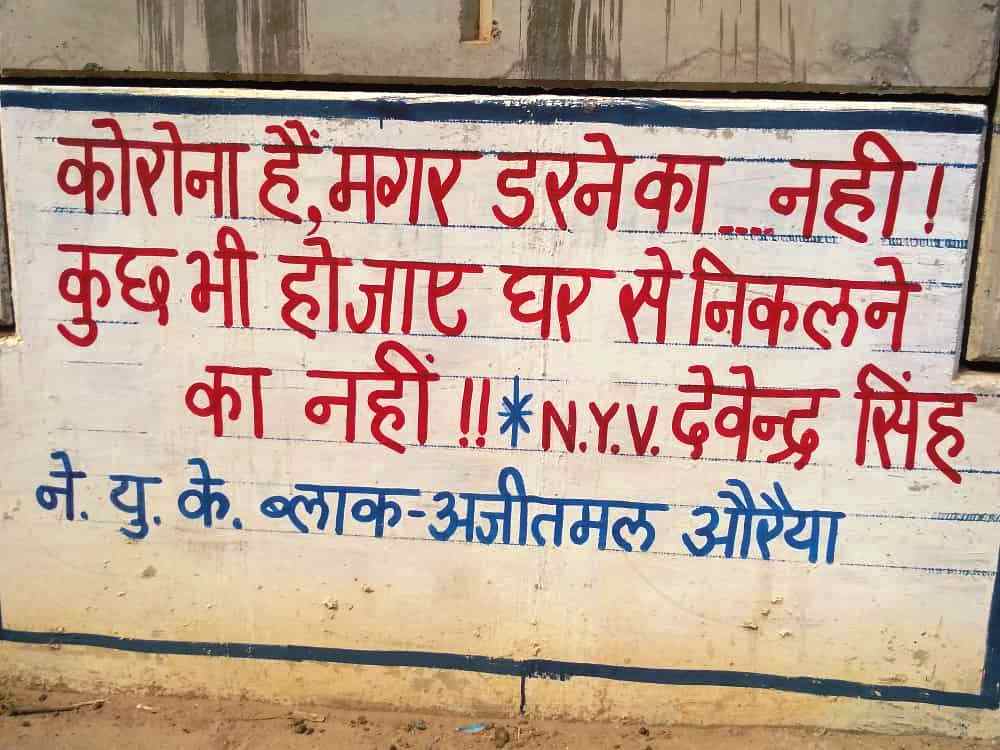 कोरोना हैं, मगर डरने का .... नही !
कुछ भी हो जाए घर से निकलने
का नहीं !! * N.Y.V. देवेन्द्र सिंह
ने. यु. के. ब्लाक-अजीतमल औरैया